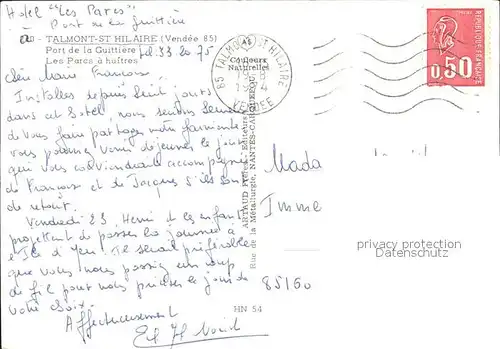 Hotel "Les Parcs"
Port de la Guittière
TALMONT-ST HILAIRE (Vendée 85)
Port de la Guittière tel. 33 20 75
Les Parcs à huîtres
Chère Marie Françoise,
Installés depuis huit jours
dans cet hotel nous serions heureux
de vous faire partager notre farniente
vous pourriez venir déjeuner le jour
qui vous conviendrait accompagnée
de François et de Jacques s'ils sont
de retour.
Vendredi 23 Henri et les enfants
projettent de passer la journée à
l'Ile d'Yeu. Il serait préférable
que vous nous passiez un coup
de fil pour nous préciser le jour de
votre choix.
Affectueusement
Couleurs
Naturelles
85 TALMONT ST HILAIRE
VENDEE
ARTAUD Frères, Editeurs
Rue de la Métallurgie, NANTES-CARQUEFOU
HN 54
REPUBLIQUE FRANÇAISE
0,50
Mada
Imme
85160
privacy protection
Datenschutz